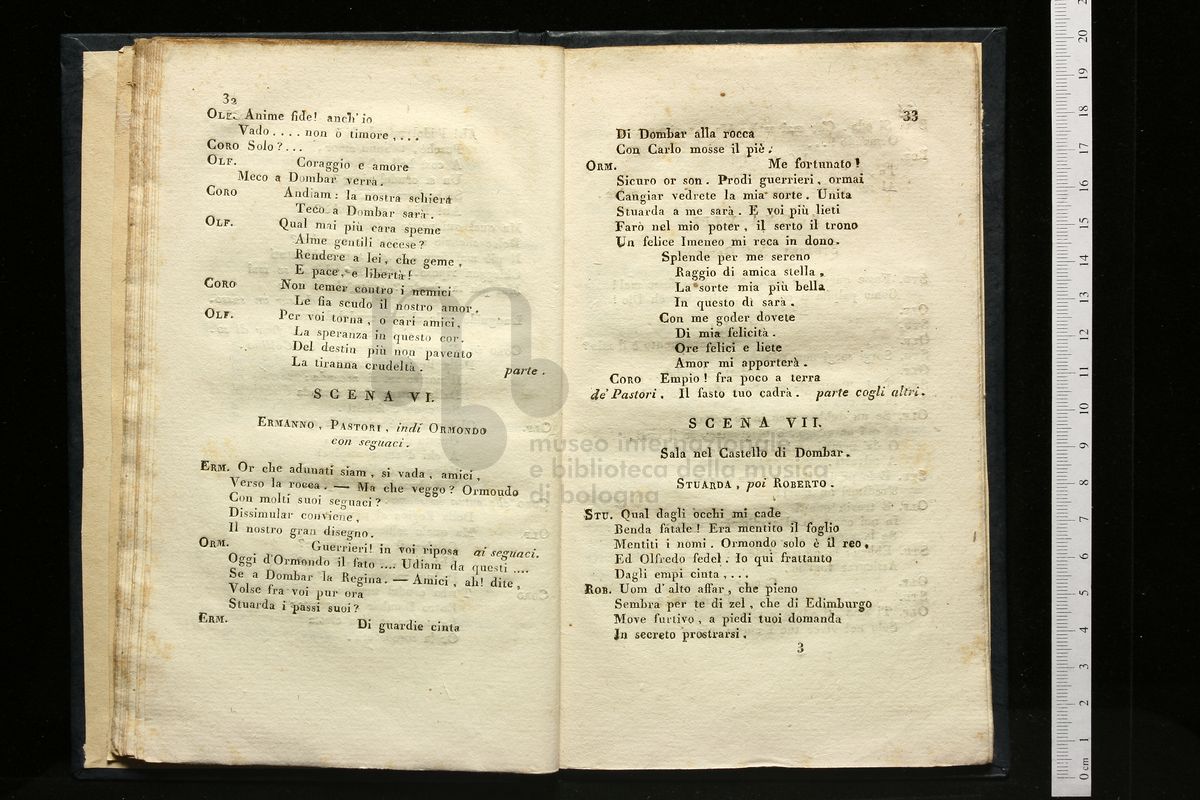 32
OLF. Anime fide! anch' io
Vado .... non ò timore ....
CORO Solo? ...
OLF. Coraggio e amore
Meco a Dombar verrà.
CORO Andiam: la nostra schiera
Teco a Dombar sarà.
OLF. Qual mai più cara speme
Alme gentili accese?
Rendere a lei, che geme,
E pace, e libertà!
CORO Non temer contro i nemici
Le fia scudo il nostro amor.
OLF. Per voi torna, o cari amici,
La speranza in questo cor.
Del destin più non pavento
La tiranna crudeltà. parte.
SCENA VI.
ERMANNO, PASTORI, indi ORMONDO
con seguaci.
ERM. Or che adunati siam, si vada, amici,
Verso la rocca. — Ma che veggo? Ormondo
Con molti suoi seguaci?
Dissimular conviene,
Il nostro gran disegno.
ORM. Guerrieri! in voi riposa ai seguaci.
Oggi d'Ormondo il fato .... Udiam da questi ....
Se a Dombar la Regina. — Amici, ah! dite,
Volse fra voi pur ora
Stuarda i passi suoi?
ERM. Di guardie cinta
33
Di Dombar alla rocca
Con Carlo mosse il piè.
ORM. Me fortunato!
Sicuro or son. Prodi guerrieri, ormai
Cangiar vedrete la mia sorte. Unita
Stuarda a me sarà. E voi più lieti
Farò nel mio poter, il serto il trono
Un felice Imeneo mi reca in dono.
Splende per me sereno
Raggio di amica stella,
La sorte mia più bella
In questo dì sarà.
Con me goder dovete
Di mia felicità.
Ore felici e liete
Amor mi apporterà.
CORO Empio! fra poco a terra
de' Pastori. Il fasto tuo cadrà. parte cogli altri.
SCENA VII.
Sala nel Castello di Dombar.
STUARDA, poi ROBERTO.
STU. Qual dagli occhi mi cade
Benda fatale! Era mentito il foglio
Mentiti i nomi. Ormondo solo è il reo,
Ed Olfredo fedel. Io qui frattanto
Dagli empi cinta, ...
ROB. Uom d'alto affar, che pieno
Sembra per te di zel, che di Edimburgo
Move furtivo, a piedi tuoi domanda
In secreto prostrarsi.
3
museo internazionale
e biblioteca della musica
di bologna
0 cm 1 2 3 4 5 6 7 8 9 10 11 12 13 14 15 16 17 18 19 20